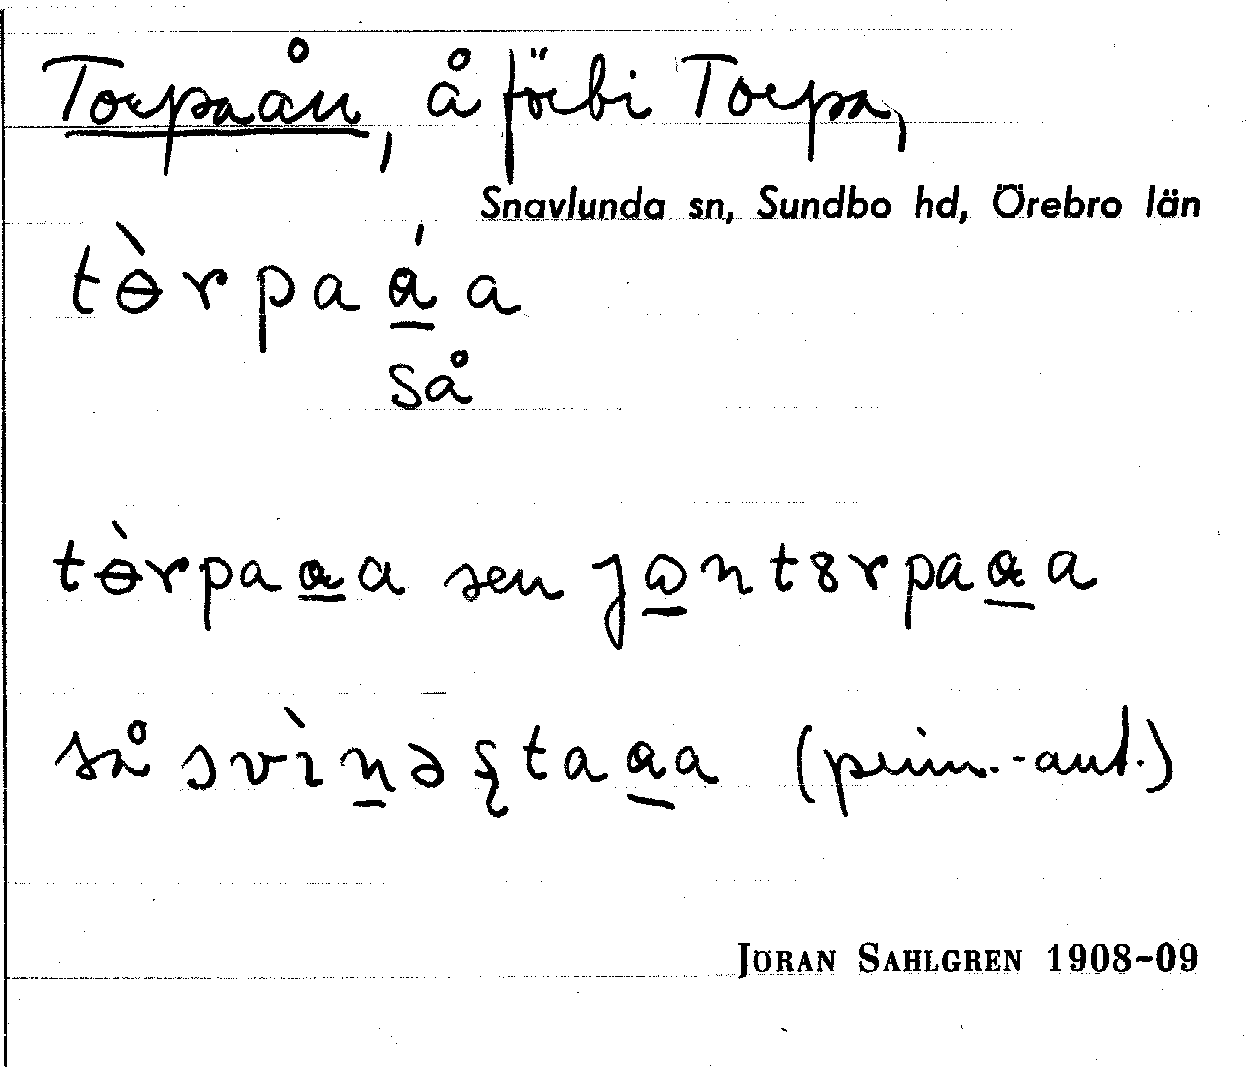 Torpaån, å förbi Torpa,
Snavlunda sn, Sundbo hd, Örebro län
tɵ̀rpaá̱a
så
tɵ̀rpaa̱a sen jɷ̱ntɵrpaa̱a
så svìṉəʂtaa̱a (prim.-aut.)
JÖRAN SAHLGREN 1908-09